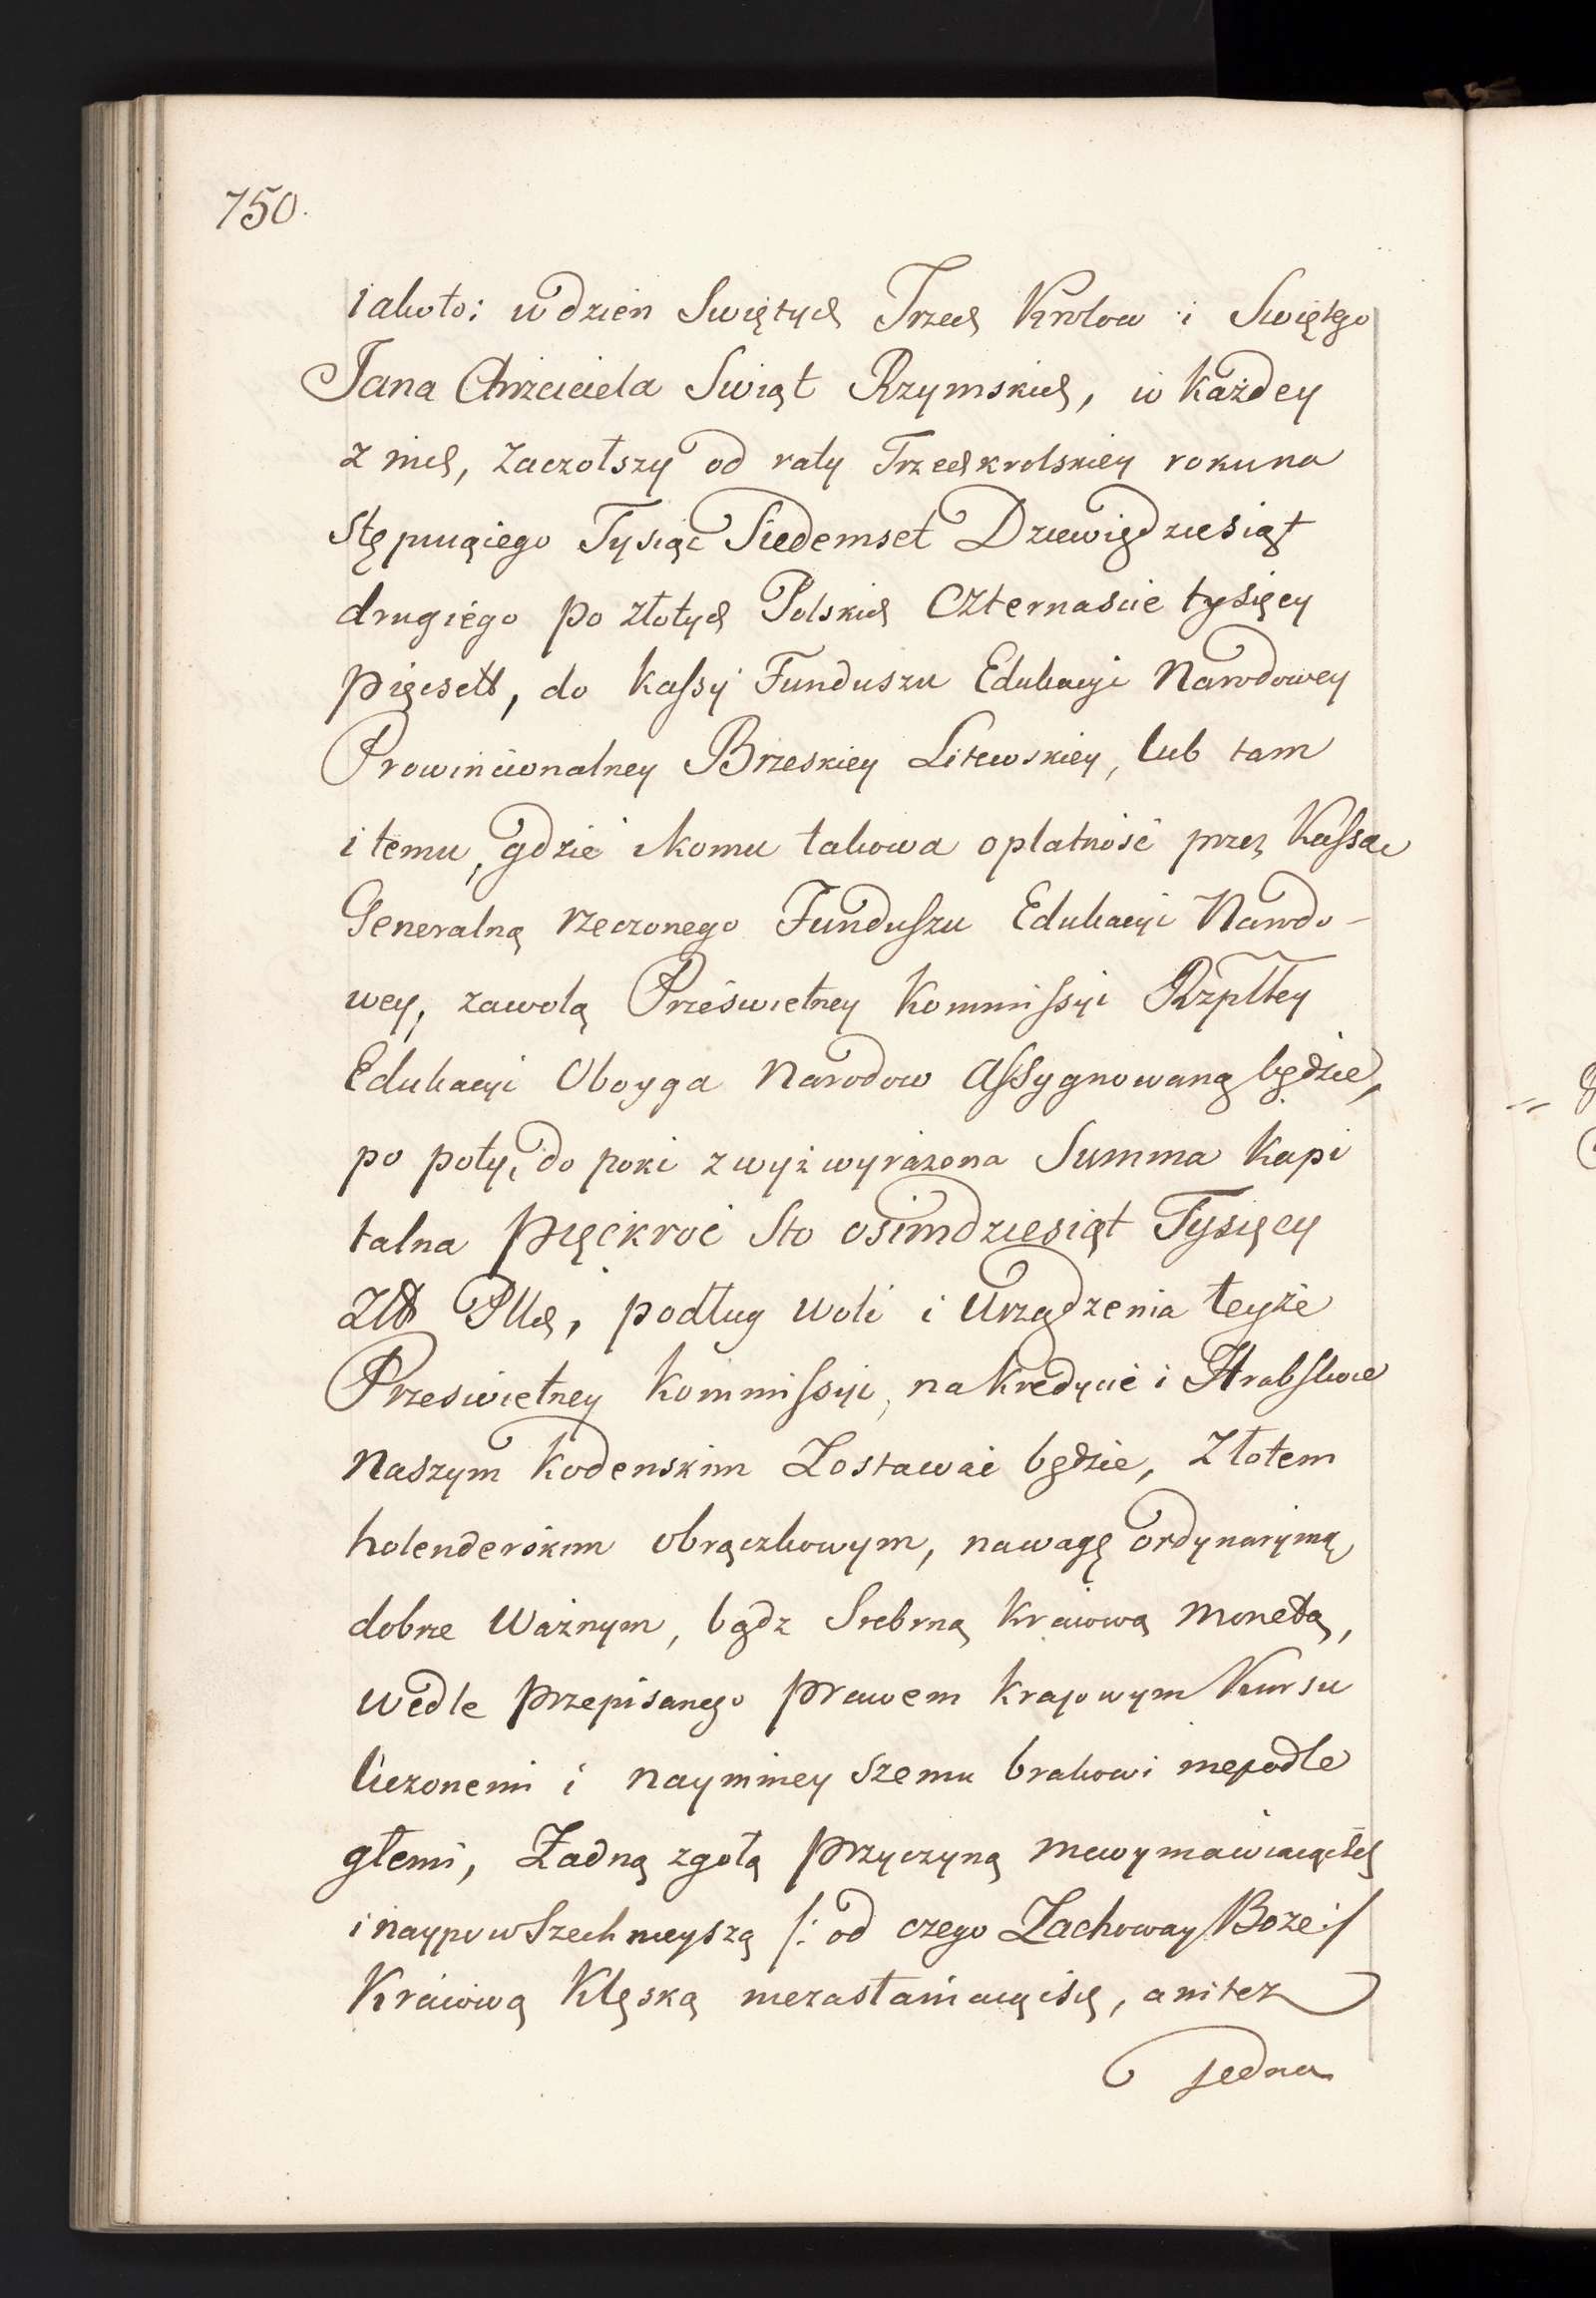 750.
iakoto: w dzien Swiętych Trzech Krolow i Swiętego
Jana Chrzciciela Swiąt Rzymskich, w każdey
z nich, zaczołszy od raty Trzechkrolskiey roku na
stępuiącego Tysiąc Siedemset Dziewiędziesiąt
drugiego po złotych Polskich Czternascie tysięcy
pięcset, do kaſsy Funduszu Edukacyi Narodowey
Prowincionalney Brzeskiey Litewskiey, lub tam
i temu, gdzie ikomu takowa opłatność przez Kaſsę
Generalną rzeczonego Funduſzu Edukacyi Narodo-
wey, zawolą Prześwietney Kommiſsyi Rzpltey
Edukacyi Oboyga Narodow Aſsygnowaną będzie,
po poty, do poki zwyż wyrażona Summa Kapi
talna pięćkroć Sto osimdziesiąt Tysięcy
Złt Pllch, podług woli i Urządzenia teyże
Przeswietney Kommiſsyi, na kredycie i Hrabſtwie
Naszym Kodenskim Zostawać będzie, Złotem
holenderskim obrączkowym, nawagę ordynaryiną
dobrze Ważnym, bądz Srebrną kraiową monetą,
wedle przepisanego prawem krajowym Kursu
liczonemi i naymniey szemu brakowi niepodle
głemi, Żadną zgołą przyczyną niewymawiaiąc się
i naypowSzechnieyszą /: od czego Zachoway Boże :/
Kraiową Klęską niezasłaniaiąc się, anitez
jedna